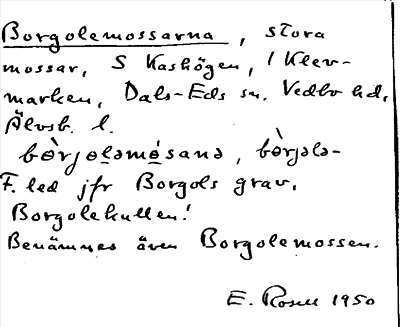 Borgolemossarna, stora
mossar, S Kashögen, i Klev-
marken, Dals-Eds sn. Vedbo hd.
Älvsb. l.
bɵ̀rjɵləmɵ́sanə, bɵ̀rjələ-
F. led jfr Borgols grav,
Borgolekullen!
Benämnes även Borgolemossen.
E. Rosell 1950